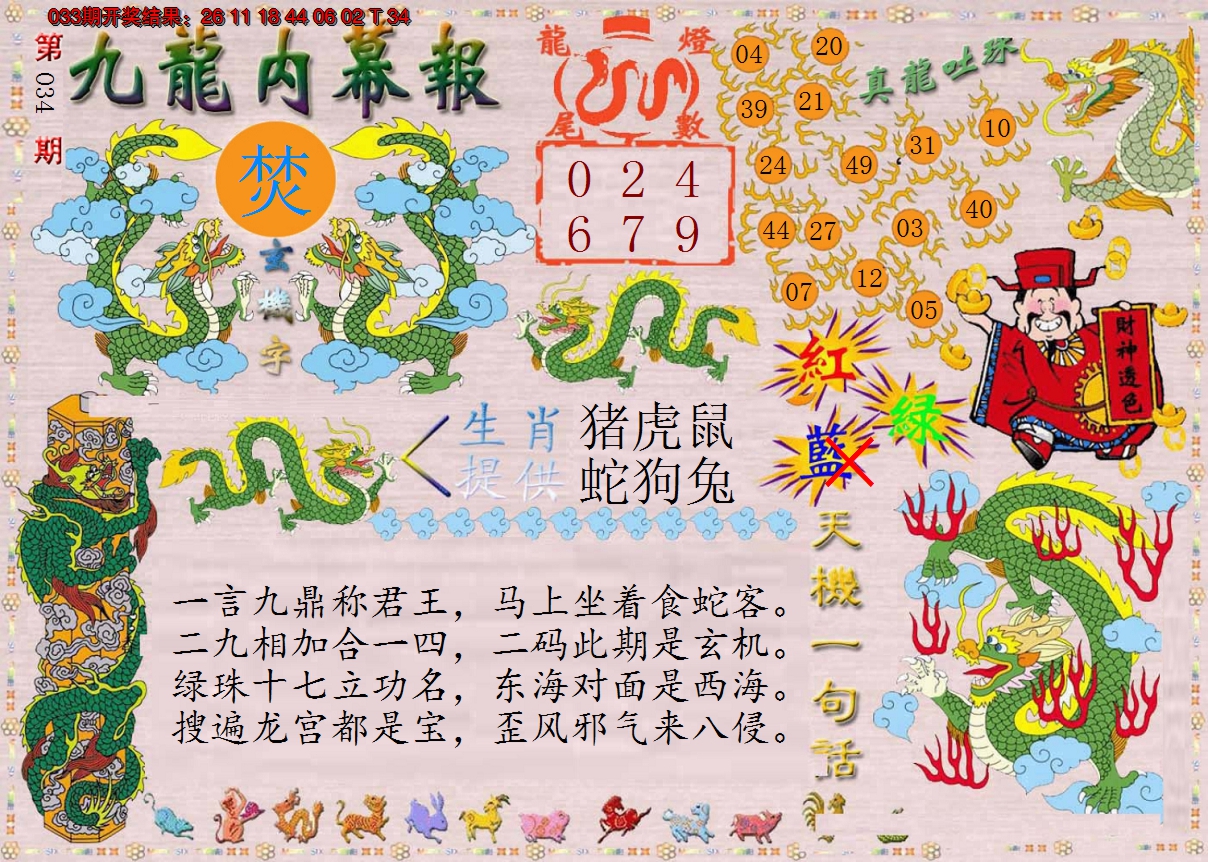 033期开奖结果：26 11 18 44 06 02 T 34
第034期
九龍内幕報
焚
玄機字
龍燈
尾數
0 2 4
6 7 9
真龍吐珠
04 20
39 21
31 10
24 49
44 27 03 40
07 12 05
財神透色
紅
綠
藍
生肖 猪虎鼠
提供 蛇狗兔
天機一句話
一言九鼎称君王，马上坐着食蛇客。
二九相加合一四，二码此期是玄机。
绿珠十七立功名，东海对面是西海。
搜遍龙宫都是宝，歪风邪气来八侵。